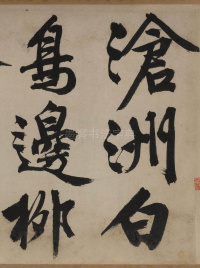 滄洲白
鳥邊柳